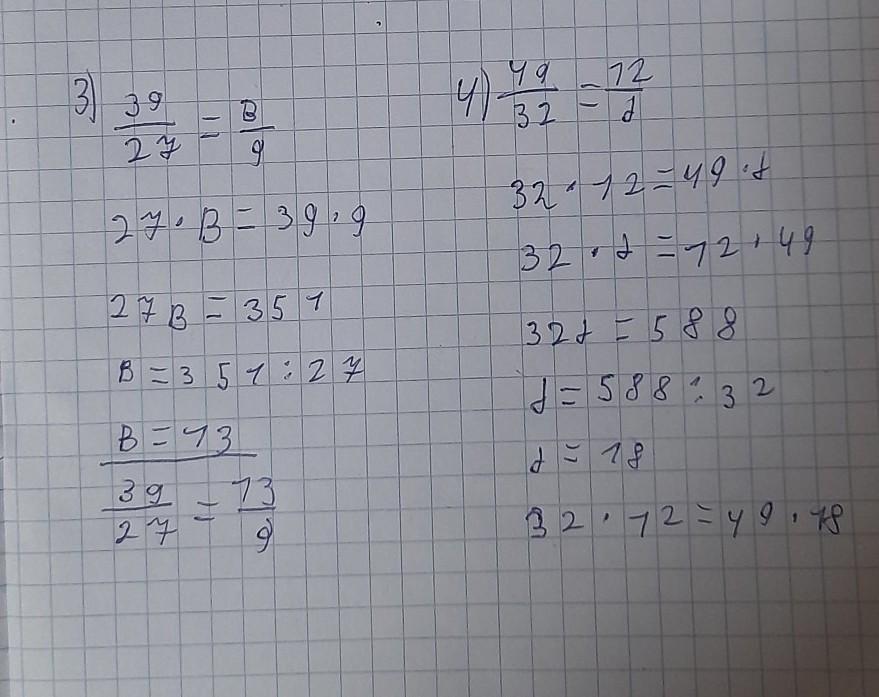 3) 39/27 = B/9
27 · B = 39 · 9
27B = 351
B = 351 : 27
B = 13
39/27 = 13/9
4) 49/32 = 12/d
32 · 12 = 49 · d
32 · d = 12 · 49
32d = 588
d = 588 : 32
d = 18
32 · 12 = 49 · 18